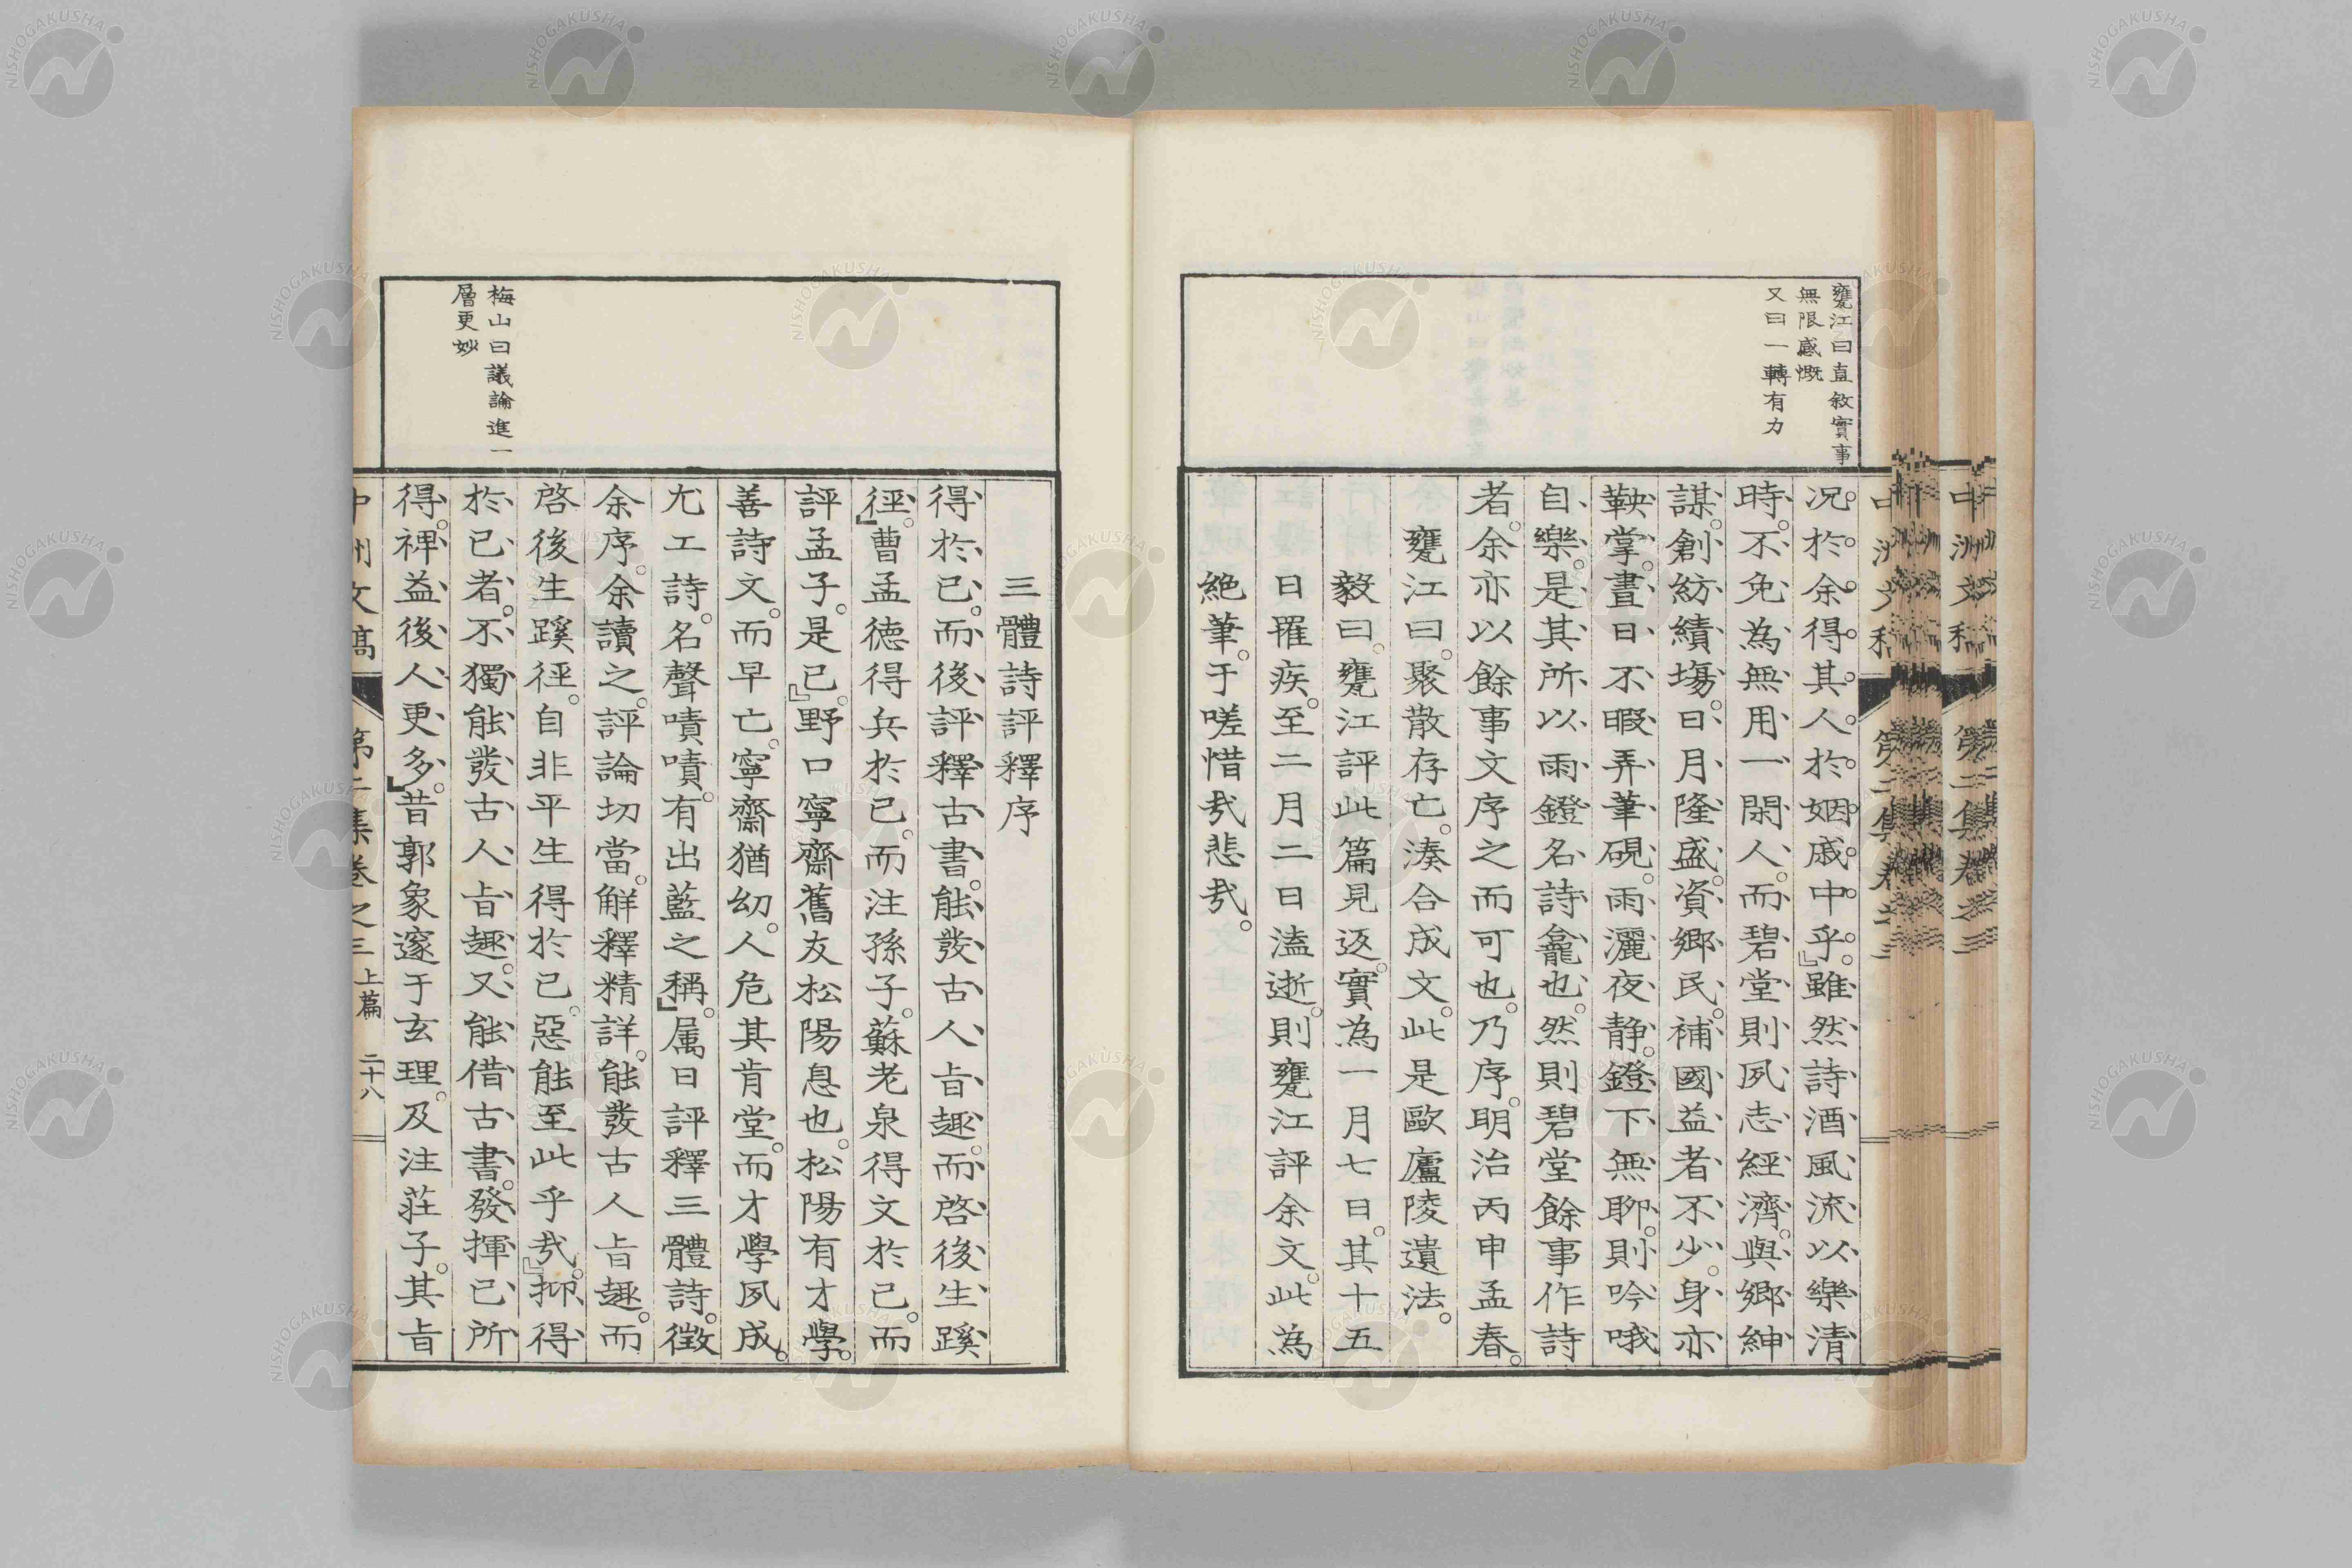 甕江曰直敘實事
無限感慨
又曰一轉有力
况於余得其人於姻戚中乎。』雖然詩酒風流以樂清
時。不免為無用一閑人。而碧堂則夙志經濟。與鄉紳
謀。創紡績塲。日月隆盛。資鄉民。補國益者不少。身亦
鞅掌。晝日不暇弄筆硯。雨灑夜静。鐙下無聊。則吟哦
自樂。是其所以雨鐙名詩龕也。然則碧堂餘事作詩
者。余亦以餘事文序之而可也。乃序。明治丙申孟春。
甕江曰。聚散存亡。湊合成文。此是歐廬陵遺法。
毅曰。甕江評此篇見返。實為一月七日。其十五
日罹疾。至二月二日溘逝。則甕江評余文。此為
絕筆。于嗟惜哉悲哉。
三體詩評釋序
得於已。而後評釋古書。能發古人㫖趣。而啓後生蹊
徑。』曹孟德得兵於已。而注孫子。蘇老泉得文於已。而
評孟子。是已。』野口寧齋舊友松陽息也。松陽有才學。
善詩文。而早亡。寧齋猶幼。人危其肯堂。而才學夙成。
尤工詩。名聲嘖嘖。有出藍之稱。』属日評釋三體詩。徵
余序。余讀之。評論切當。解釋精詳。能發古人㫖趣。而
啓後生蹊徑。自非平生得於已。惡能至此乎哉。』抑得
於已者。不獨能發古人㫖趣。又能借古書。發揮已所
得。裨益後人更多。』昔郭象邃于玄理。及注莊子。其㫖
梅山曰議論進一
層更妙
中洲文稿 第二集卷之三 上篇 二十八